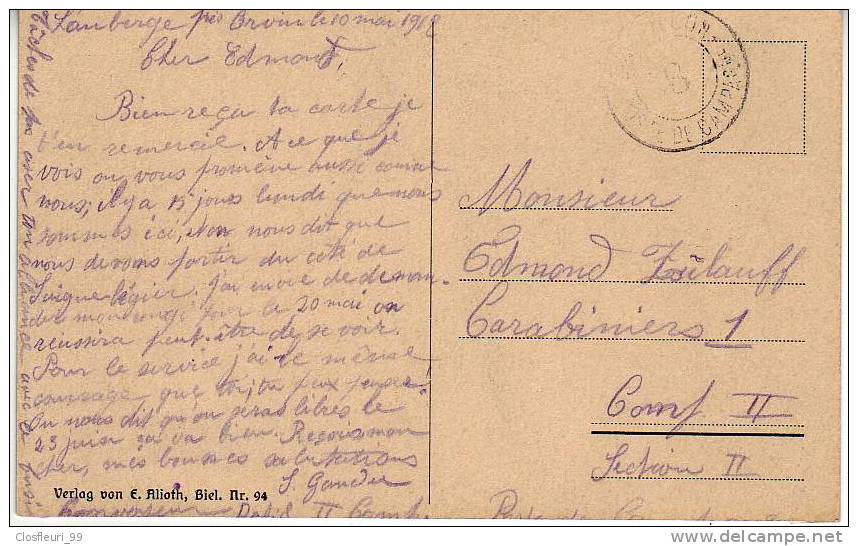 L'auberge près Orvin le 10 mai 1918
Cher Edmont,
Bien reçu ta carte je
t'en remercie. A ce que je
vois on vous promène aussi comme
nous; il y a 15 jours lundi que nous
sommes ici, et on nous dit que
nous devons partir du côté de
Saignelégier. J'ai envie de deman-
der mon congé pour le 20 mai on
réussira peut-être de se voir.
Pour le service j'ai le même
courage que toi, tu peux penser!
On nous dit qu'on seras libres le
23 juin ça va bien. Reçois mon
cher, mes bonnes salutations
S. Gander
II Comp
Verlag von E. Alioth, Biel. Nr. 94
DE CAMPAGNE
Monsieur
Edmond Zülauff
Carabiniers 1
Comp II
Section II
Closfleuri_99
delcampe.net